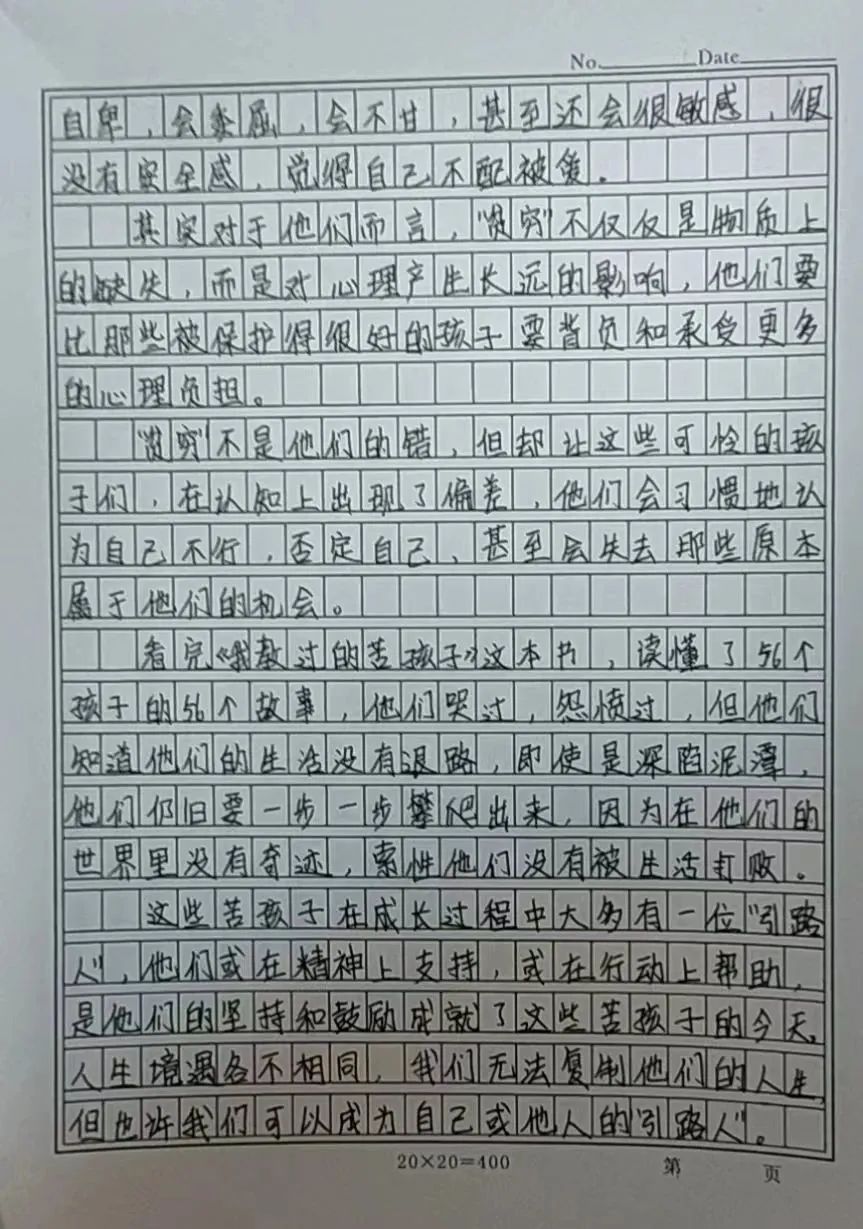 No. Date
自卑，会委屈，会不甘，甚至还会很敏感，很
没有安全感，觉得自己不配被爱。
其实对于他们而言，“贫穷”不仅仅是物质上
的缺失，而是对心理产生长远的影响，他们要
比那些被保护得很好的孩子要背负和承受更多
的心理负担。
“贫穷”不是他们的错，但却让这些可怜的孩
子们，在认知上出现了偏差，他们会习惯地认
为自己不行，否定自己，甚至会失去那些原本
属于他们的机会。
看完《我教过的苦孩子》这本书，读懂了56个
孩子的56个故事，他们哭过，怨愤过，但他们
知道他们的生活没有退路，即使是深陷泥潭，
他们仍旧要一步一步攀爬出来，因为在他们的
世界里没有奇迹，索性他们没有被生活打败。
这些苦孩子在成长过程中大多有一位“引路
人”，他们或在精神上支持，或在行动上帮助，
是他们的坚持和鼓励成就了这些苦孩子的今天，
人生境遇各不相同，我们无法复制他们的人生，
但也许我们可以成为自己或他人的“引路人”。
20×20=400 第 页